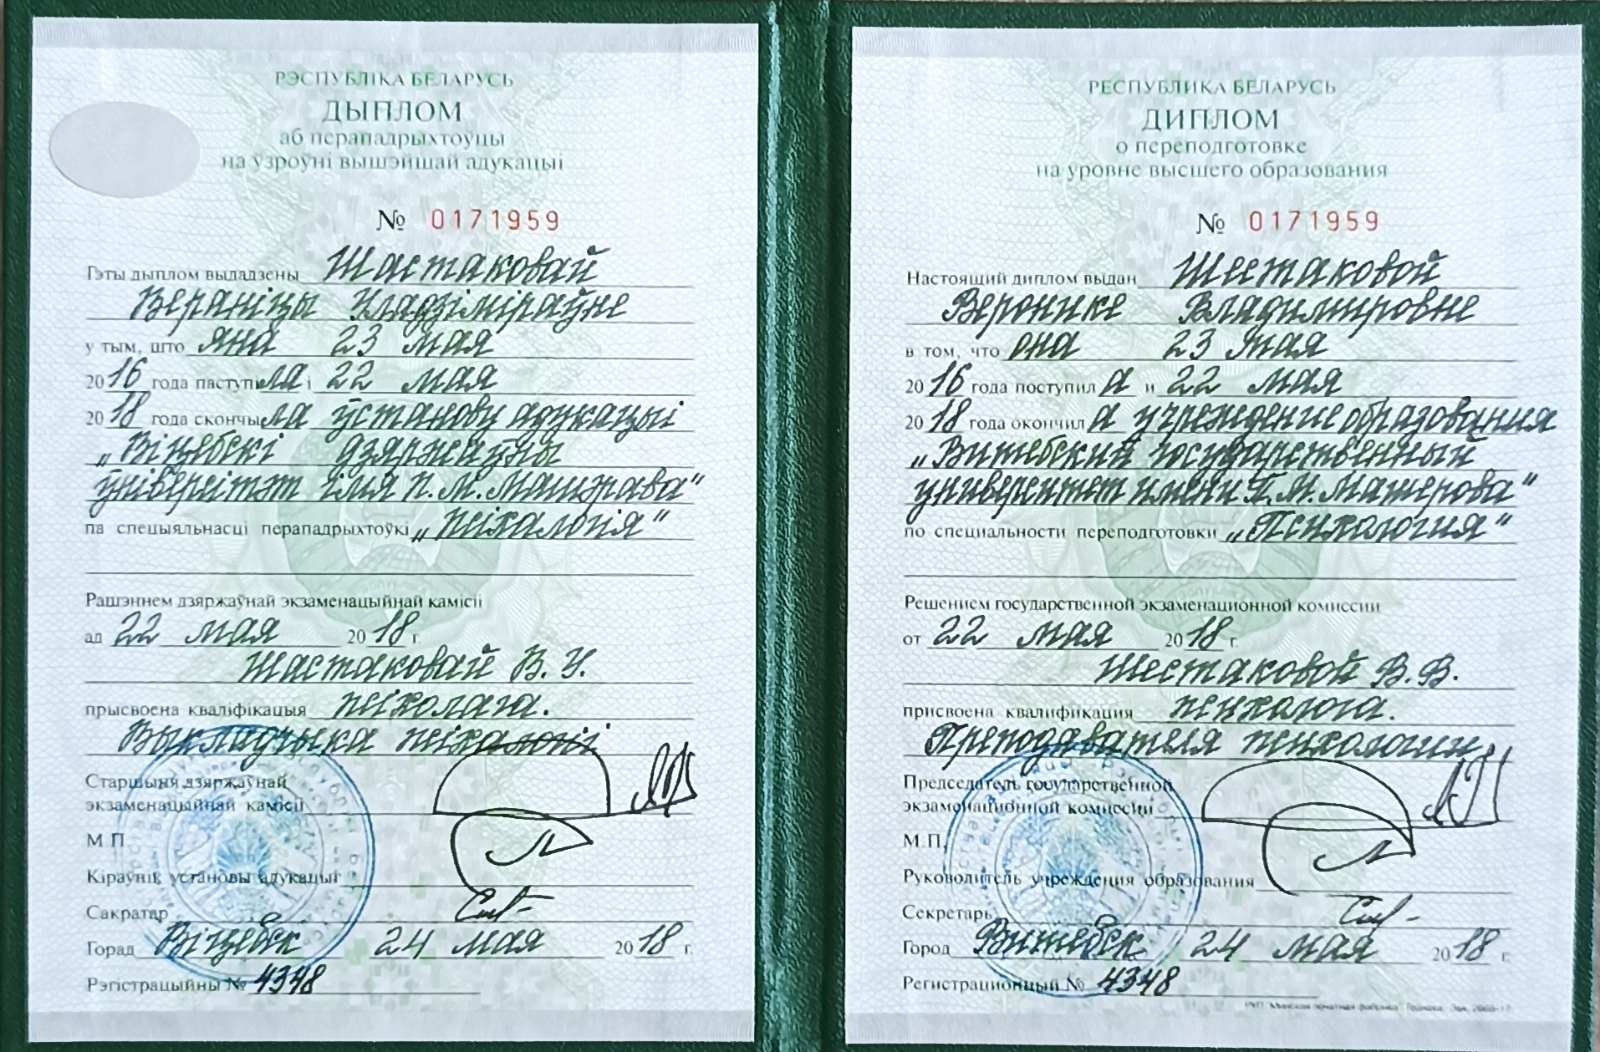 РЭСПУБЛІКА БЕЛАРУСЬ
ДЫПЛОМ
аб перападрыхтоўцы
на ўзроўні вышэйшай адукацыі
№ 0171959
Гэты дыплом выдадзены Шастаковай
Вераніцы Уладзіміраўне
у тым, што яна 23 мая
2016 года паступіла і 22 мая
2018 года скончыла ўстанову адукацыі
„Віцебскі дзяржаўны
ўніверсітэт імя П.М.Машэрава"
па спецыяльнасці перападрыхтоўкі „Псіхалогія"
Рашэннем дзяржаўнай экзаменацыйнай камісіі
ад 22 мая 2018 г.
Шастаковай В.У.
прысвоена кваліфікацыя псіхолага.
Выкладчыка псіхалогіі
Старшыня дзяржаўнай
экзаменацыйнай камісіі
М.П.
Кіраўнік установы адукацыі
Сакратар
Горад Віцебск 24 мая 2018 г.
Рэгістрацыйны № 4348
РЕСПУБЛИКА БЕЛАРУСЬ
ДИПЛОМ
о переподготовке
на уровне высшего образования
№ 0171959
Настоящий диплом выдан Шестаковой
Веронике Владимировне
в том, что она 23 мая
2016 года поступила и 22 мая
2018 года окончила учреждение образования
„Витебский государственный
университет имени П.М.Машерова"
по специальности переподготовки „Психология"
Решением государственной экзаменационной комиссии
от 22 мая 2018 г.
Шестаковой В.В.
присвоена квалификация психолога.
Преподавателя психологии
Председатель государственной
экзаменационной комиссии
М.П.
Руководитель учреждения образования
Секретарь
Город Витебск 24 мая 2018 г.
Регистрационный № 4348